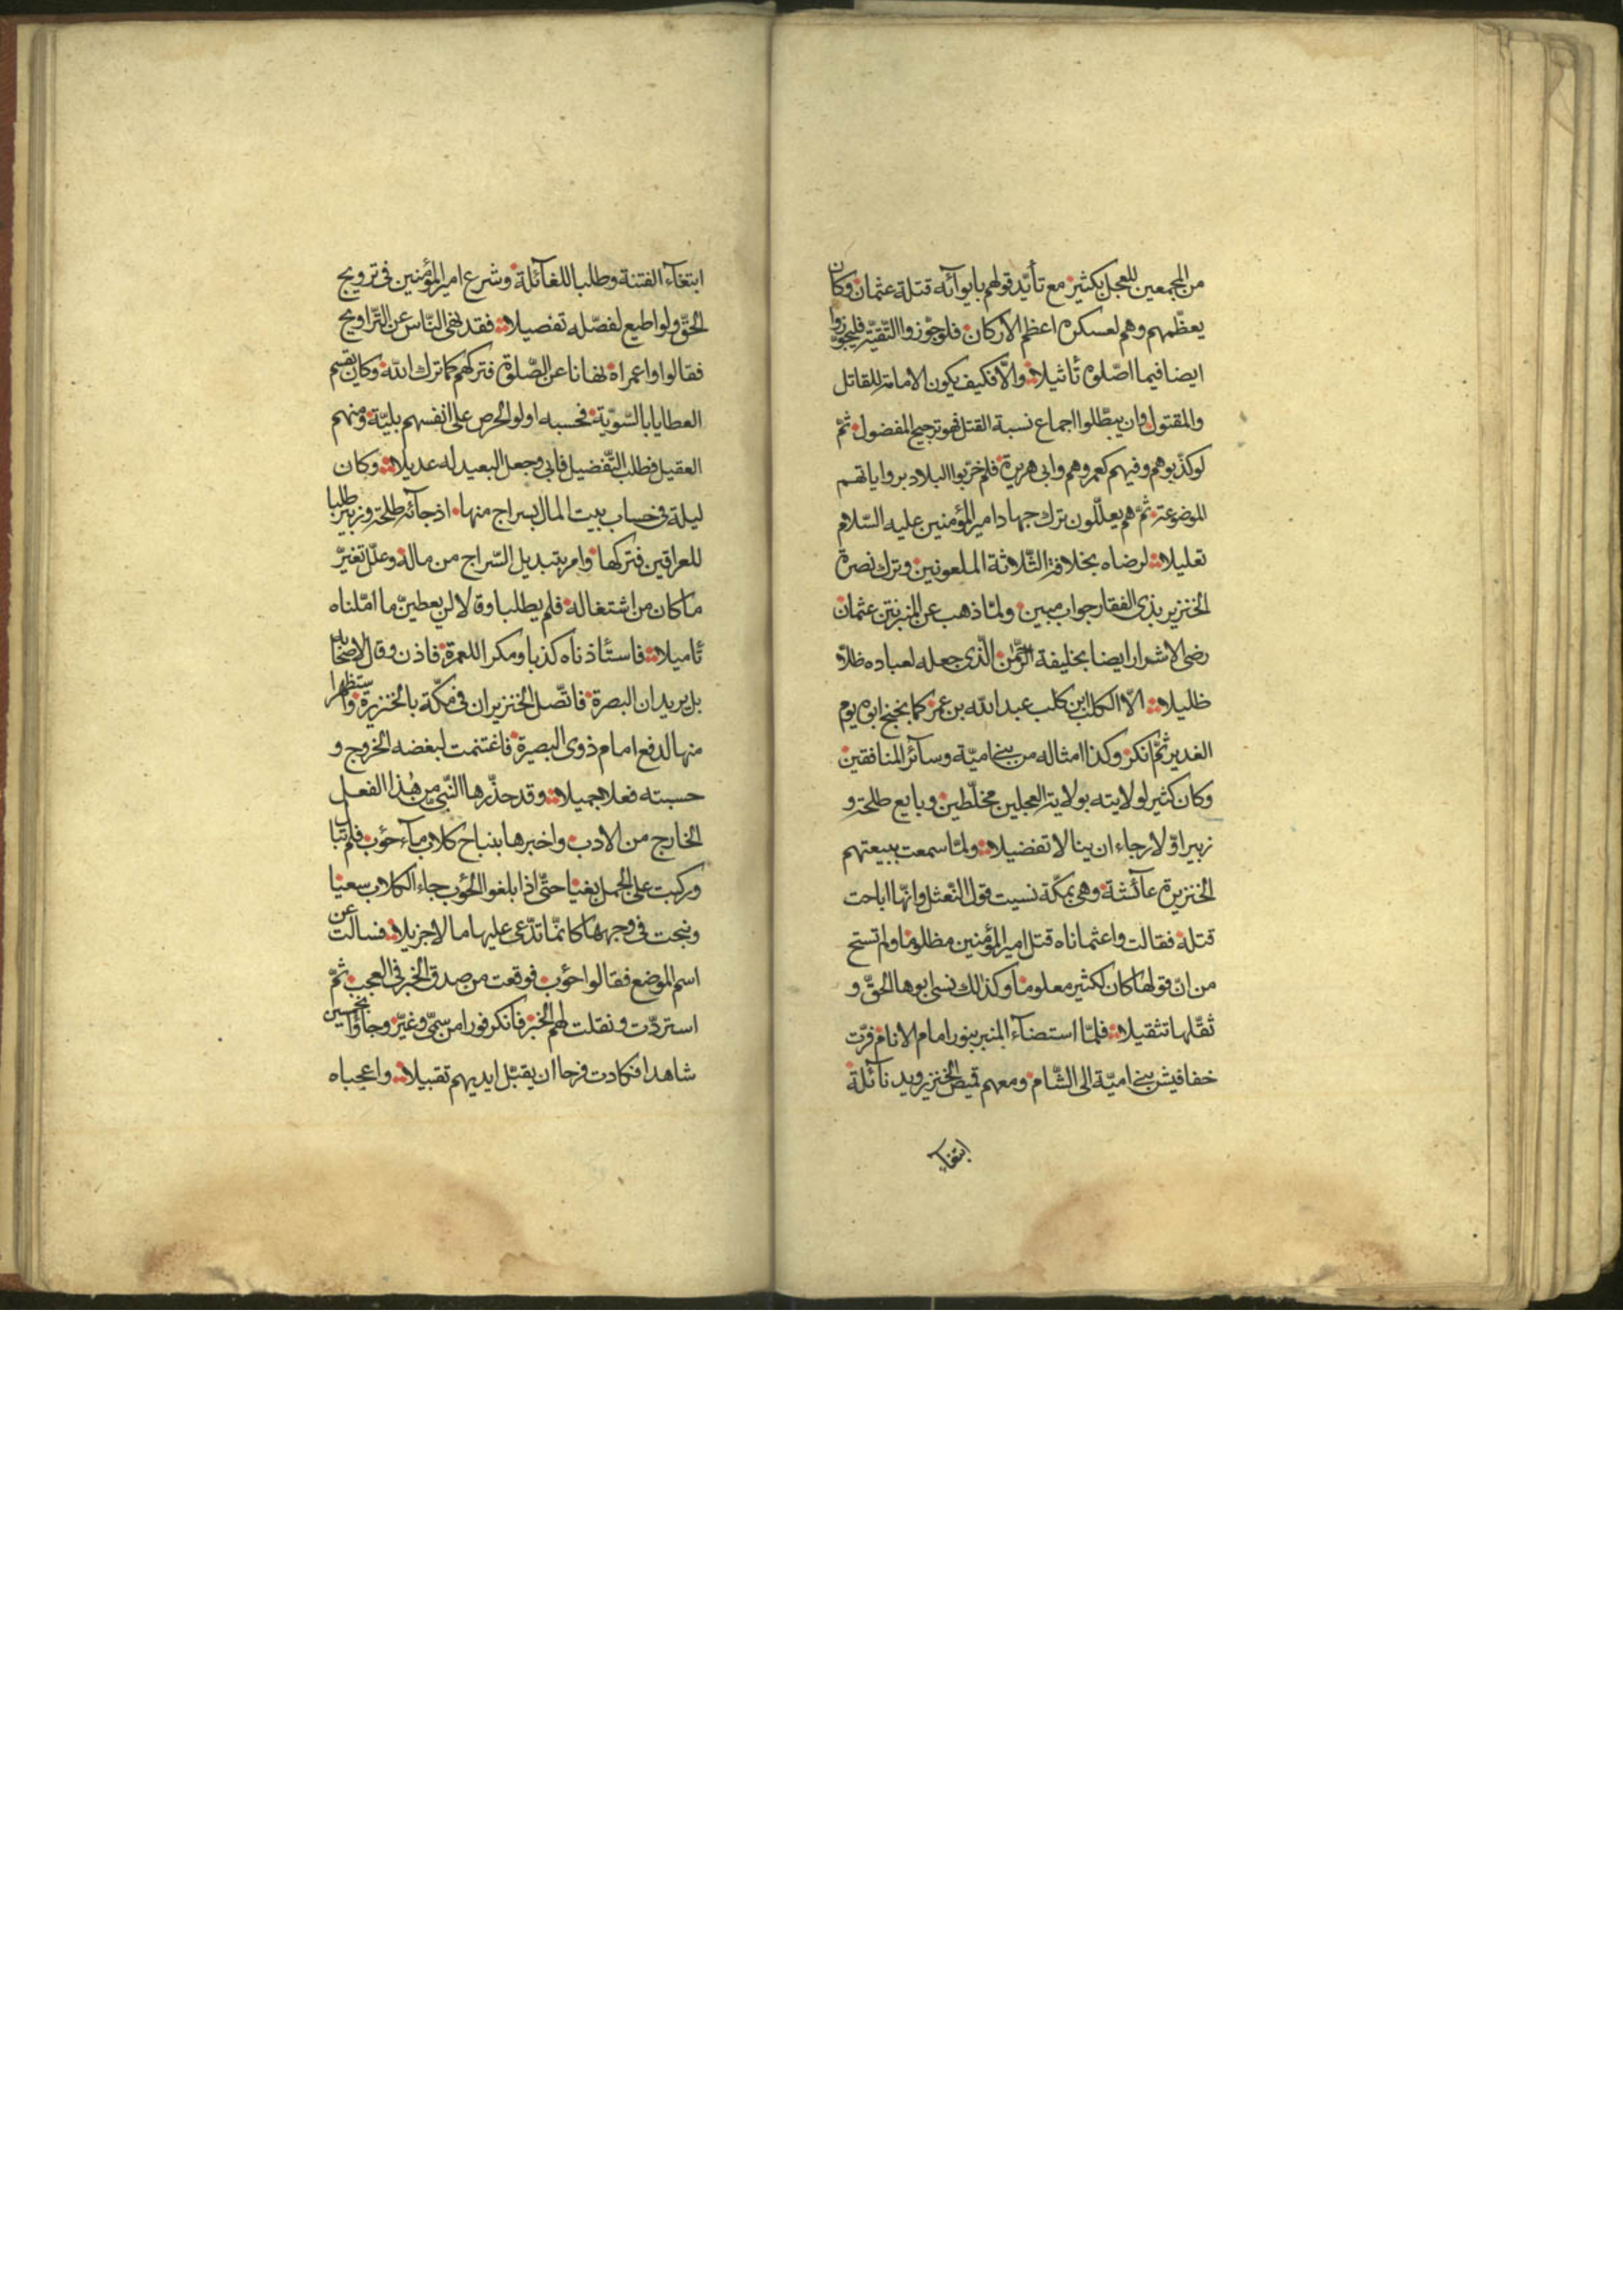 من المجمعين للعجل بكثير مع تأيّد قولهم بايوآئه قتلة عثمان وكان
يعظّمهم وهم لعسكره اعظم الاركان فلوجوّزوا التّقيّة فليجوّزوا
ايضا فيما اصّلوه تأثيلا والّا فكيف يكون الامامة للقاتل
والمقتول وان يبطّلوا اجماع نسبة القتل فهو ترجيح المفضول ثمّ
لوكذّبوهم وفيهم كعمروهم وابى هريرة فلم خرّبوا البلاد برواياتهم
الموضوعة ثمّ هم يعلّلون ترك جهاد امير المؤمنين عليه السّلام
تعليلا لرضاه بخلافة الثّلاثة الملعونين وترك نصرة
الخنزير بذى الفقار جواب مبين ولمّا ذهب عن المنبر نتن عثمان
رضى الاشرار ايضا بخليفة الرّحمن الّذى جعله لعباده ظلّا
ظليلا الّا الكلب ابن كلب عبد الله بن عمر كما بخبخ ابوه يوم
الغدير ثمّ انكر وكذا امثاله من بنى اميّة وسآئر المنافقين
وكان كثير لولايته بولاية العجلين مخلّطين وبايع طلحة و
زبير اوّلا رجاء ان ينالا تفضيلا ولمّا سمعت ببيعتهم
الخنزيرة عآئشة وهى بمكّة نسيت قول النّعثل وانّها اباحت
قتله فقالت واعثماناه قتل امير المؤمنين مظلوما ولم تستح
من انّ قولها كان لكثير معلوما وكذلك نسى ابوها الحقّ و
ثقّلها تثقيلا فلمّا استضآء المنبر بنور امام الانام فرّت
خفافيش بنى اميّة الى الشّام ومعهم قميص الخنزير ويد نآئلة
ابتغآء
ابتغآء الفتنة وطلبا للغآئلة وشرع امير المؤمنين فى ترويج
الحقّ ولو اطيع لفصّله تفصيلا فقد نهى النّاس عن التّراويح
فقالوا واعمراه نهانا عن الصّلوة فتركهم كما ترك الله وكان يقسم
العطايا بالسّويّة فحسبه اولو الحرص على انفسهم بليّة ومنهم
العقيل فطلب التّفضيل فابى وجعل البعيد له عديلا وكان
ليلة فى حساب بيت المال بسراج منها اذ جآئه طلحة وزبير طلبا
للعراقين فتركها وامر بتبديل السّراج من ماله وعلّل تغيّر
ما كان من اشتغاله فلم يطلبا وقالا لن يعطينّ ما امّلناه
تأميلا فاستأذناه كذبا ومكرا للعمرة فاذن وقال لاصحابه
بل يريدان البصرة فاتّصل الخنزيران فى مكّة بالخنزيرة واستظهرا
منها لدفع امام ذوى البصيرة فاغتنمت لبغضه الخروج و
حسبته فعلا جميلا وقد حذّرها النّبىّ من هذا الفعل
الخارج من الادب واخبرها بنباح كلاب مآء حوّب فلم تبال
وركبت على الجمل بغيا حتّى اذا بلغوا الحوّب جاء الكلاب سعيا
ونبحت فى وجهها كانّما تدّعى عليها مالا جزيلا فسالت عن
اسم الموضع فقالوا حوّب فوقعت من صدق الخبر فى العجب ثمّ
استردّت ونقلت لهم الخبر فانكر فورا من سمّى وغيّر وجاؤا بخمسين
شاهدا فكادت فرحا ان يقبّل ايديهم تقبيلا واعجباه